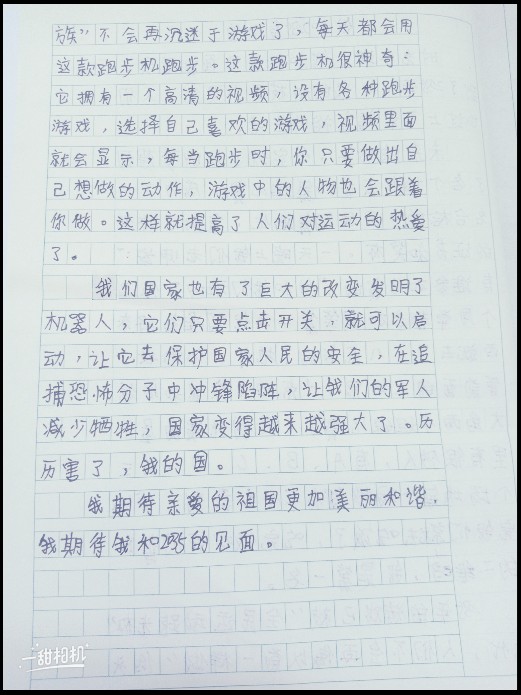 族”不会再沉迷于游戏了，每天都会用
这款跑步机跑步。这款跑步机很神奇：
它拥有一个高清的视频，设有各种跑步
游戏，选择自己喜欢的游戏，视频里面
就会显示，每当跑步时，你只要做出自
己想做的动作，游戏中的人物也会跟着
你做。这样就提高了人们对运动的热爱
了。
我们国家也有了巨大的改变发明了
机器人，它们只要点击开关，就可以启
动，让它去保护国家人民的安全，在追
捕恐怖分子中冲锋陷阵，让我们的军人
减少牺牲，国家变得越来越强大了。厉
厉害了，我的国。
我期待亲爱的祖国更加美丽和谐，
我期待我和2035的见面。
一甜相机